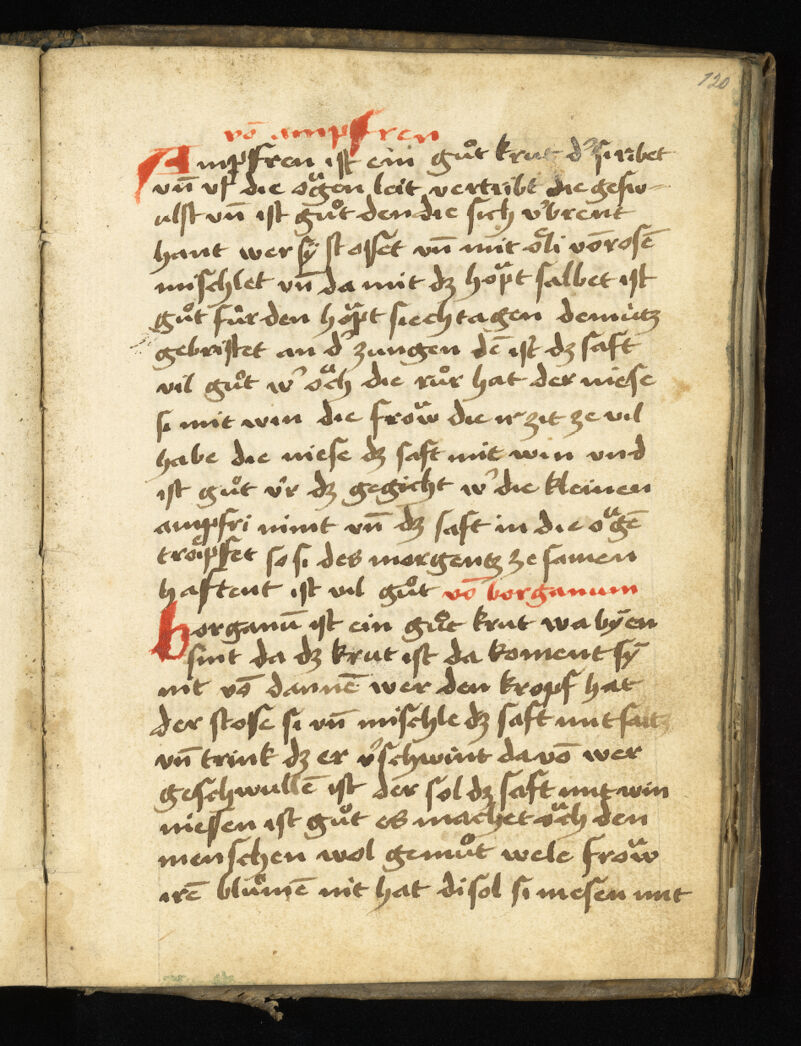 120
võ ampfren
Ampfren ist ein gůt krut d' si ribet
vñ vf die oͮgen leit vertribt die gesw-
ulst vñ ist gůt den die sich v'brent
hant wer sÿ stosset vñ mit oͤli võ rosẽ
mischlet vñ da mit dz hoͮpt salbet ist
gůt fúr den hoͮpt siechtagen dem útz
gebristet an d' zungen dẽ ist dz saft
vil gůt w' oͮch die růr hat der niese
si mit win die froͮw die ir zit ze vil
habe die niese dz saft mit win und
ist gůt v́r dz gegicht w' die kleinen
ampfri nimt vñ dz saft in die oͮgẽ
troͤpffet so si des morgentz ze samen
haftent ist vil gůt võ borganum
borganũ ist ein gůt krut wa bÿen
sint da dz krut ist da koment sÿ
nit võ dannẽ wer den kropf hat
der stose si vñ mischle dz saft mit saltz
vñ trink dz er v'schwint da võ wer
geschwullẽ ist der sol dz saft mit win
niessen ist gůt es machet oͮch den
menschen wol gemůt wele froͮw
irẽ blůmẽ nit hat di sol si niesen mit